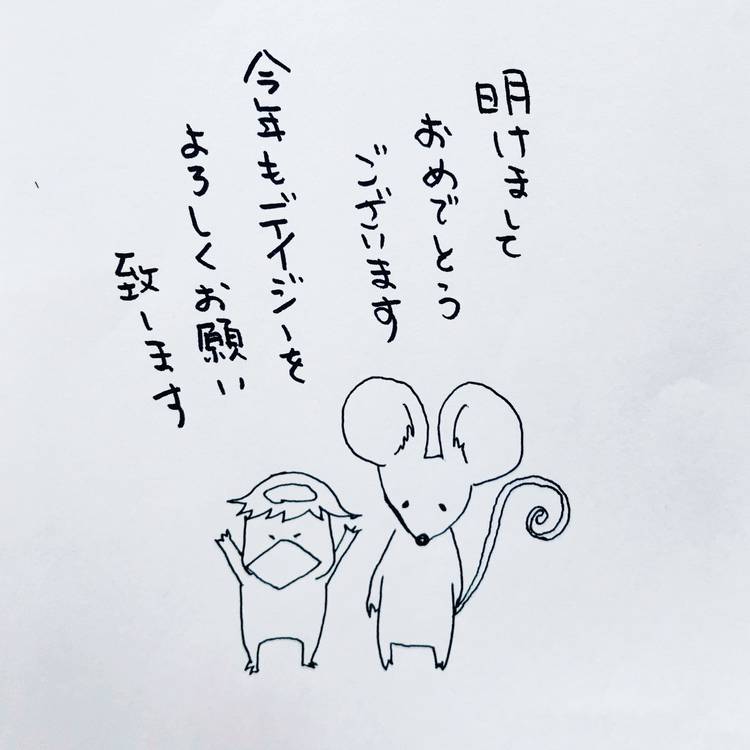 明けまして
おめでとう
ございます
今年もデイジーを
よろしくお願い
致します